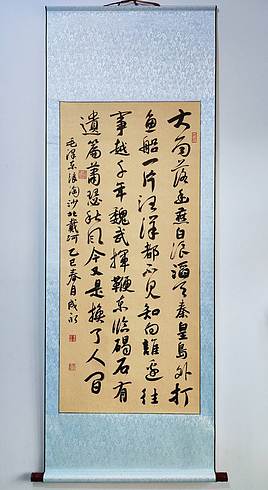 大雨落幽燕白浪滔天秦皇島外打
魚船一片汪洋都不見知向誰邊往
事越千年魏武揮鞭東臨碣石有
遺篇蕭瑟秋風今又是換了人間
毛澤東浪淘沙北戴河乙巳春月成